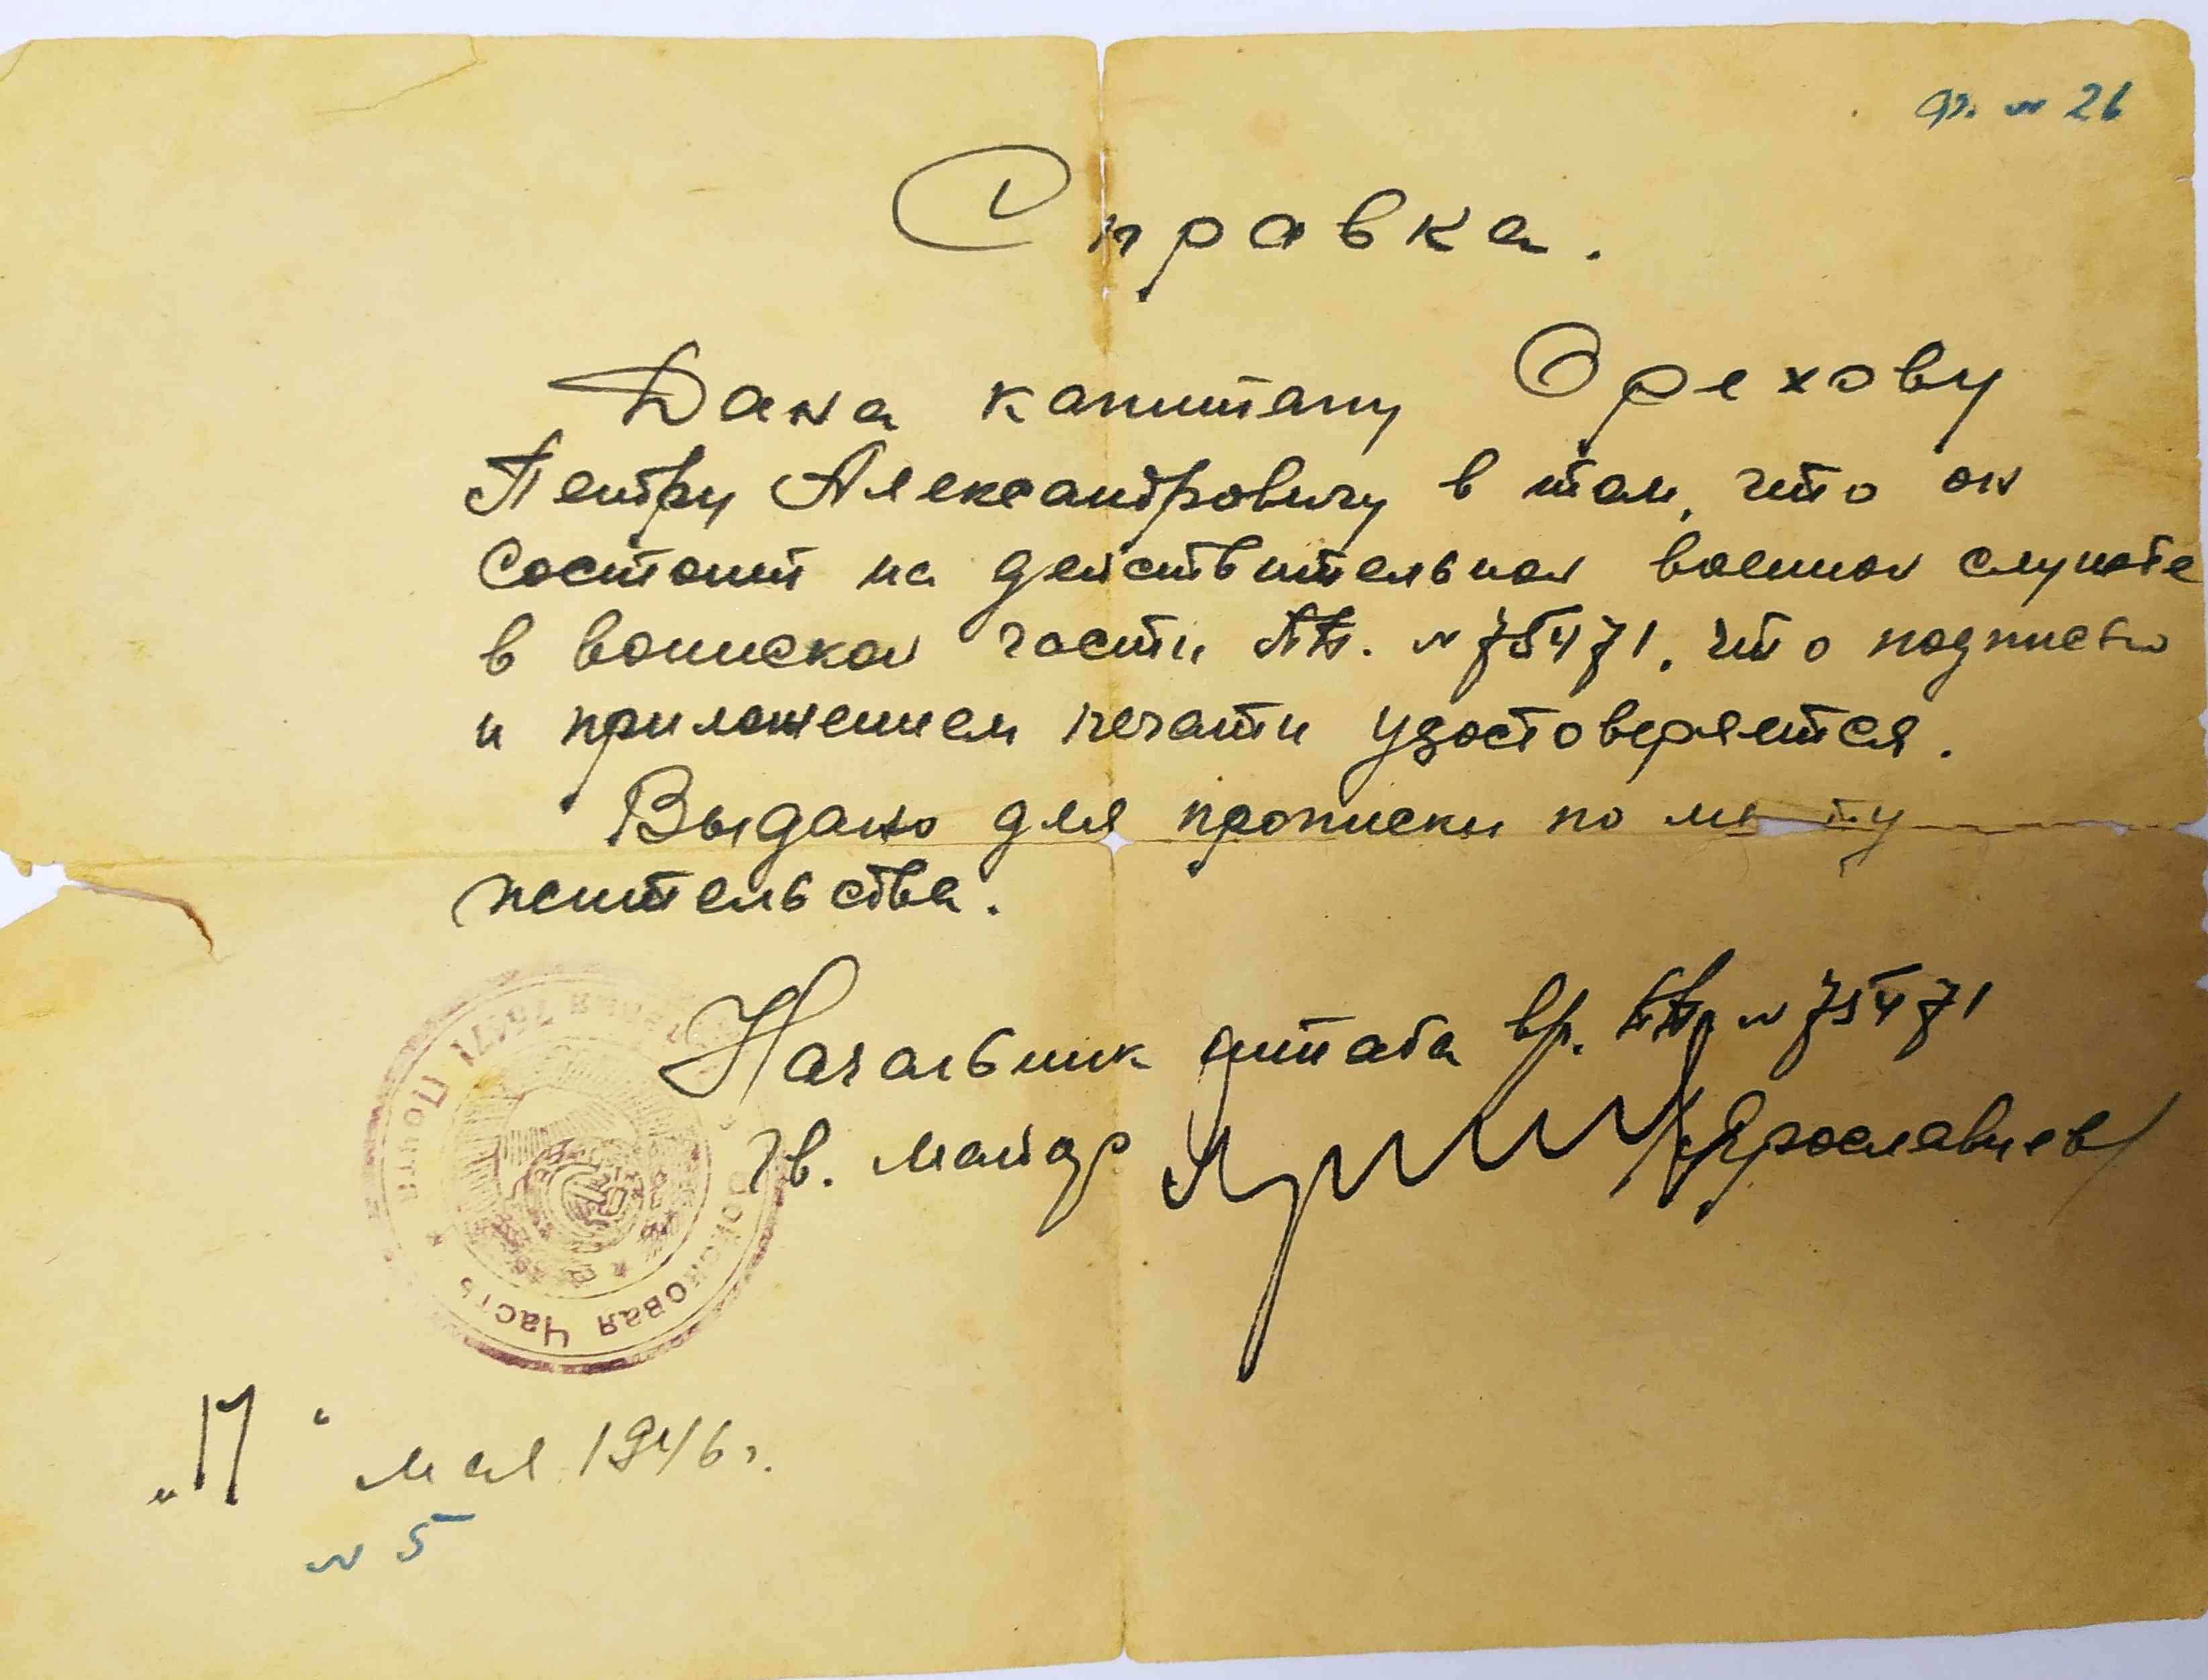 ф. № 26
Справка.
Дана капитану Орехову
Петру Александровичу в том, что он
состоит на действительной военной службе
в воинской части пп. № 75471, что подписью
и приложением печати удостоверяется.
Выдано для прописки по ме ту
жительства.
Начальник штаба вч. пп. № 75471
Гв. майор /Ярославцев/
Войсковая Часть
75471 Почта
" мая 1946 г.
№ 5